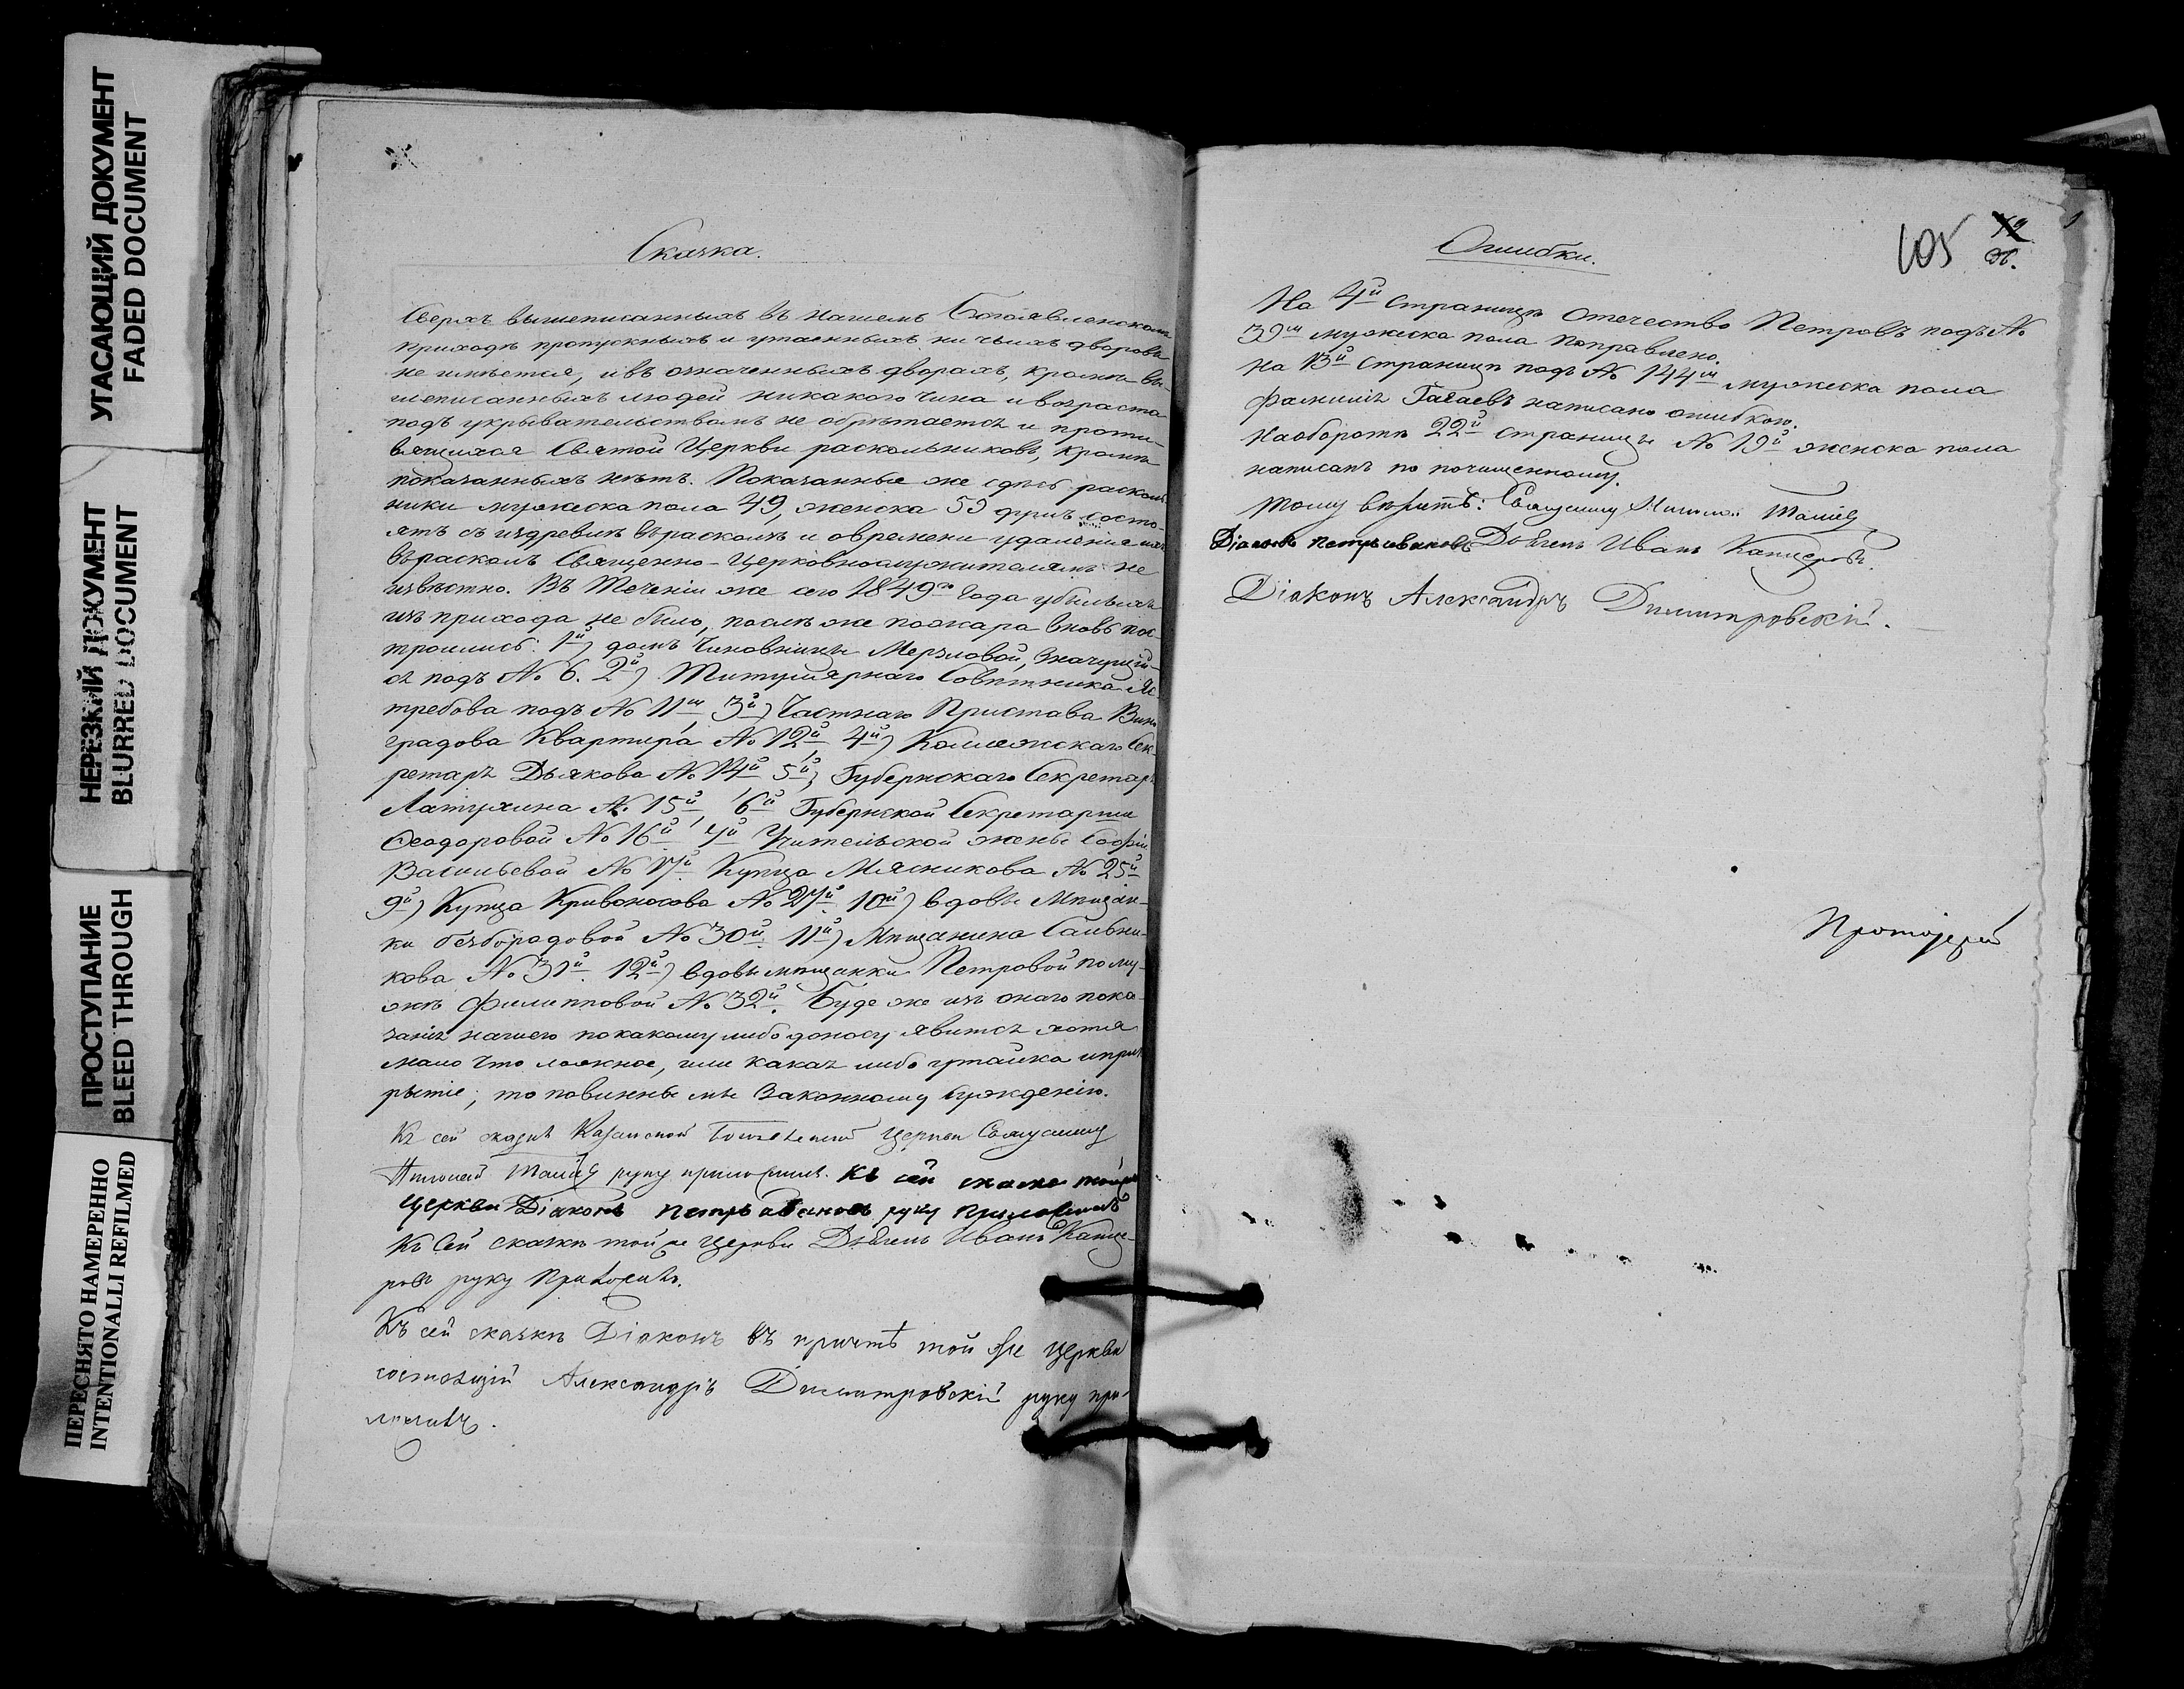 УГАСАЮЩИЙ ДОКУМЕНТ
FADED DOCUMENT
НЕРЕЗКИЙ ДОКУМЕНТ
BLURRED DOCUMENT
ПРОСТУПАНИЕ
BLEED THROUGH
ПЕРЕСНЯТО НАМЕРЕННО
INTENTIONALLI REFILMED
Сказка.
Сверхъ вышеписанныхъ въ нашемъ Богоявленскомъ
приходѣ пропускныхъ и утаенныхъ ни чьихъ дворовъ
не имѣется, и въ означенныхъ дворахъ, кромѣ вы-
шеписанныхъ людей никакого чина и возраста
подъ укрывательствомъ не обрѣтается и проти-
вящихся Святой Церкви раскольниковъ, кромѣ
показанныхъ нѣтъ. Показанные же здѣсь расколь-
ники мужеска пола 49, женска 53 душъ состо-
ятъ съ издревлѣ въ расколѣ и о времени удаленія ихъ
въ расколъ Священно-Церковнослужителямъ не
извѣстно. Въ теченіи же сего 1849го года убылыхъ
изъ прихода не было, послѣ же пожара вновь пос-
троились: 1й) домъ Чиновницы Мерзловой, значущій-
ся подъ № 6. 2й) Титулярнаго Совѣтника Яс-
требова подъ № 11м, 3й) Частнаго Пристава Вино
градова Квартира № 12й, 4й) Коллежскаго Сек-
ретаря Дьякова № 14й 5й) Губернскаго Секретаря
Латухина № 15й, 6й Губернской Секретарши
Ѳеодоровой № 16й, 7й Учительской жены Софіи
Васильевой № 17й. Купца Мясникова № 25й
9й) Купца Кривоносова № 27й. 10й) вдовы Мѣщан-
ки безбородовой № 30й. 11й) Мѣщанина Сальни-
кова № 31й. 12й) вдовы мѣщанки Петровой по му-
жѣ Филипповой № 32й. Буде же изъ онаго пока-
занія нашего по какому либо доносу явится хотя
мало что ложное, или какая либо утайка и прик
рытіе, то повинны мы Законному сужденію.
Къ сей сказкѣ Казанской Богоявленской Церкви Священникъ
руку приложилъ. Къ сей сказке тойже
церкви Діаконъ Петръ Ивановъ руку приложилъ
Къ сей сказкѣ той же Церкви Дьячекъ Иванъ Канце-
ровъ руку приложилъ.
Къ сей сказкѣ Діаконъ въ причтѣ той же церкви
состоящій Александръ Димитровскій руку при-
ложилъ.
105
Ошибки.
На 4й страницѣ отечество Петровъ подъ №
39м мужеска пола поправлено.
на 13й страницѣ подъ № 144м мужеска пола
фамилія Гагаевъ написано ошибкою.
На оборотѣ 22й страницы № 19й женска пола
написанъ по почищенному.
Тому вѣрить: Священникъ
Діаконъ Петръ Ивановъ Дьячекъ Иванъ Канцеровъ.
Діаконъ Александръ Димитровскій.
Протоіерей